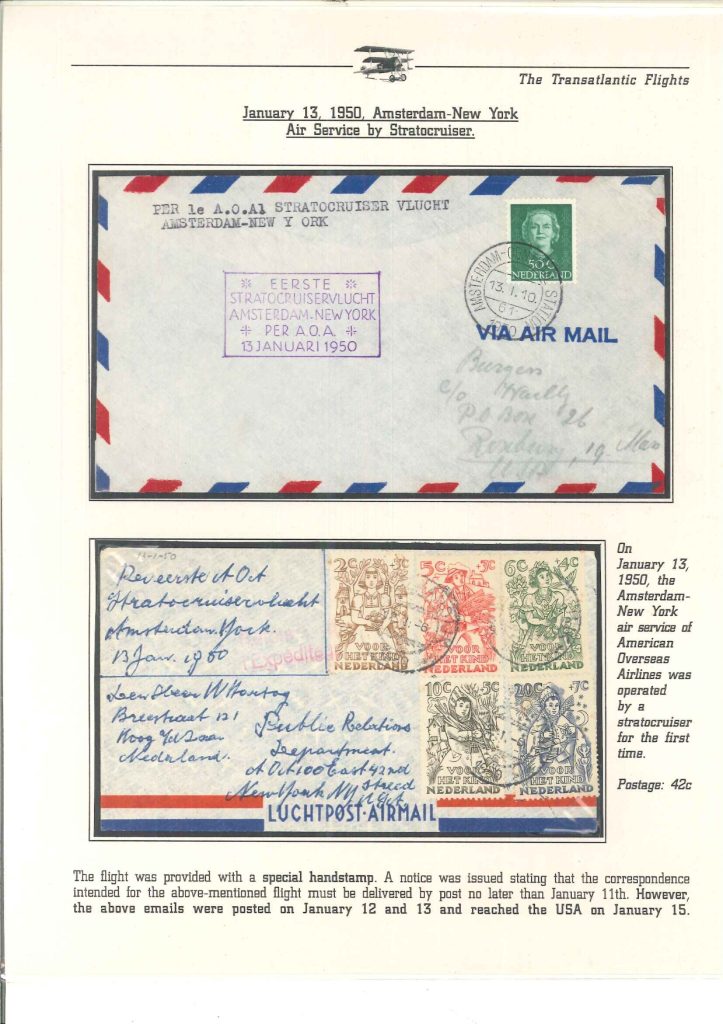 The Transatlantic Flights
January 13, 1950, Amsterdam-New York
Air Service by Stratocruiser.
PER 1e A.O.A1 STRATOCRUISER VLUCHT
AMSTERDAM-NEW Y ORK
50c
NEDERLAND
AMSTERDAM-C
STATION
13.1.10.
61
EERSTE
STRATOCRUISERVLUCHT
AMSTERDAM-NEW YORK
PER A.O.A.
13 JANUARI 1950
VIA AIR MAIL
Burgers
c/o Wailly
P.O Box 26
Roxbury, 19, Mas
USA
13-1-50
Per eerste A O A
Stratocruiservlucht
Amsterdam York.
13 Jan. 1950
Expeditie
2c +3c
VOOR
HET KIND
NEDERLAND
5c +3c
VOOR
HET KIND
NEDERLAND
6c +4c
VOOR
HET KIND
NEDERLAND
10c +5c
VOOR
HET KIND
NEDERLAND
20c +7c
VOOR
HET KIND
NEDERLAND
Breestraat 131
Koog a/d Zaan
Nederland.
Public Relations
Department.
A O A 100 East 42nd
Street
New York NY
LUCHTPOST-AIRMAIL
On
January 13,
1950, the
Amsterdam-
New York
air service of
American
Overseas
Airlines was
operated
by a
stratocruiser
for the first
time.
Postage: 42c
The flight was provided with a special handstamp. A notice was issued stating that the correspondence
intended for the above-mentioned flight must be delivered by post no later than January 11th. However,
the above emails were posted on January 12 and 13 and reached the USA on January 15.